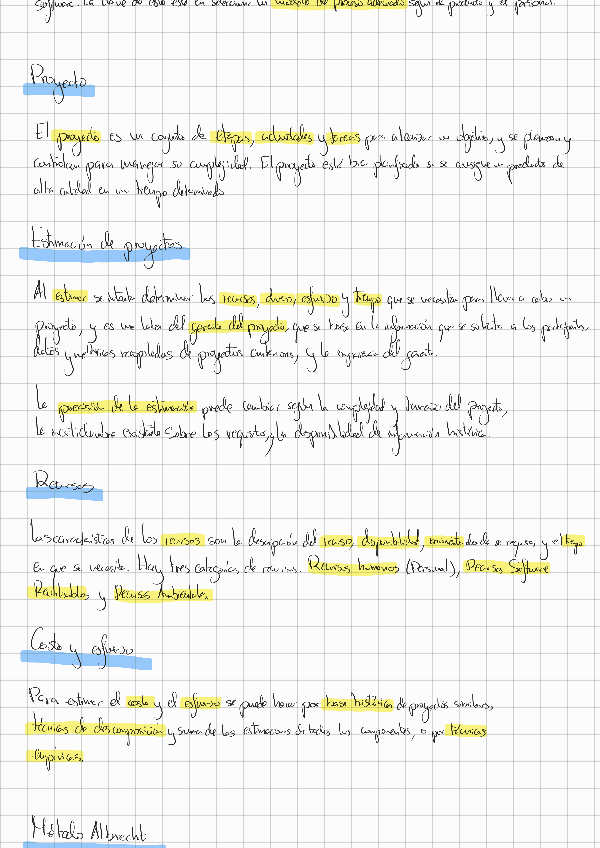 software. La clave de esto está en seleccionar un modelo de proceso adecuado según el producto y el personal.
Proyecto
El proyecto es un conjunto de etapas, actividades y tareas para alcanzar un objetivo, y se planean y
controlan para manejar su complejidad. El proyecto está bien planificado si se consigue un producto de
alta calidad en un tiempo determinado
Estimación de proyectos
Al estimar se intenta determinar los recursos, dinero, esfuerzo y tiempo que se necesitan para llevar a cabo un
proyecto, y es una labor del gerente del proyecto, que se basa en la información que se solicita a los participantes,
datos y métricas recopiladas de proyectos anteriores, y la experiencia del gerente.
La precisión de la estimación puede cambiar según la complejidad y tamaño del proyecto,
la incertidumbre existente sobre los requisitos, y la disponibilidad de información histórica.
Recursos
Las características de los recursos son la descripción del recurso, disponibilidad, momento donde se requiere, y el tiempo
en que se necesita. Hay tres categorías de recursos. Recursos humanos (Personal), Recursos Software
Reutilizables y Recursos Ambientales.
Costo y esfuerzo
Para estimar el costo y el esfuerzo se puede hacer por base histórica de proyectos similares,
técnicas de descomposición y suma de las estimaciones de todos los componentes, o por técnicas
empíricas.
Método Albrecht